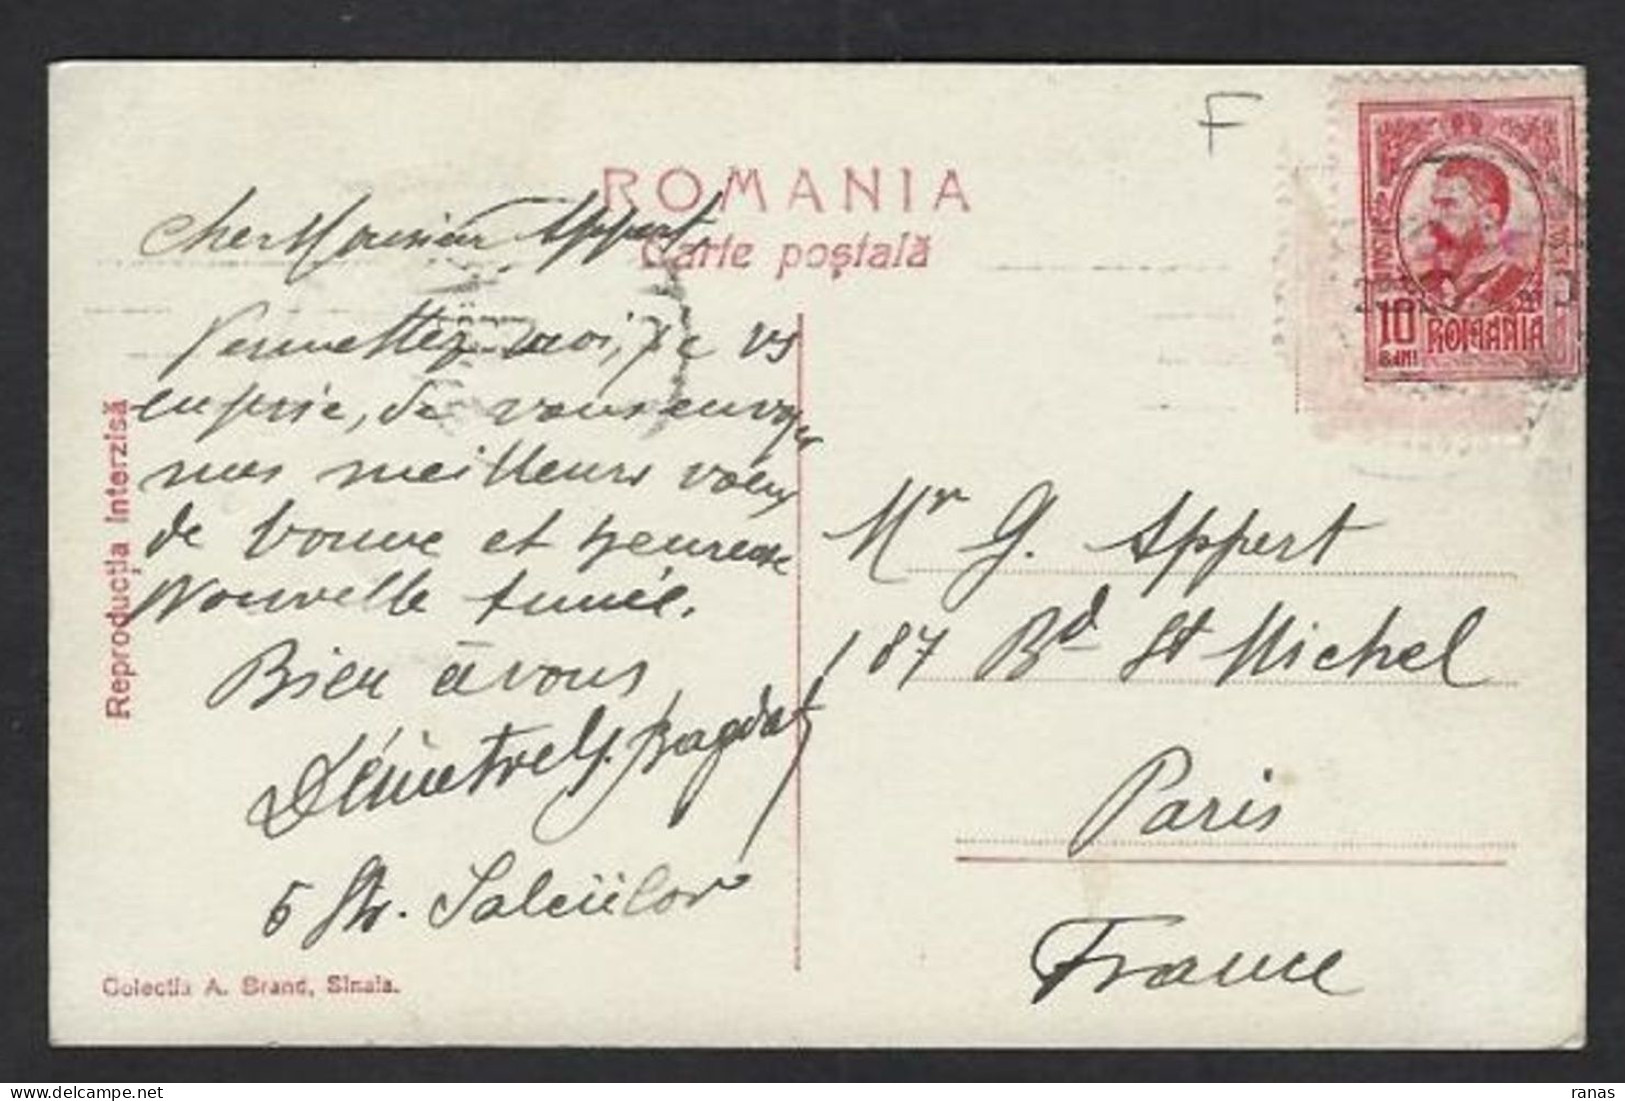 F
ROMANIA
Carte poștală
Cher Monsieur Appert,
Permettez moi, je vs
en prie, de vous envoyer
mes meilleurs vœux
de bonne et heureuse
Nouvelle Année.
Bien à vous
Démètre G. Bagdat
6 Str. Salciilor
Reproducția interzisă
Colectia A. Brand, Sinaia.
POSTA
10
BANI
ROMANIA
Mr G. Appert
187 Bd St Michel
Paris
France
ranas